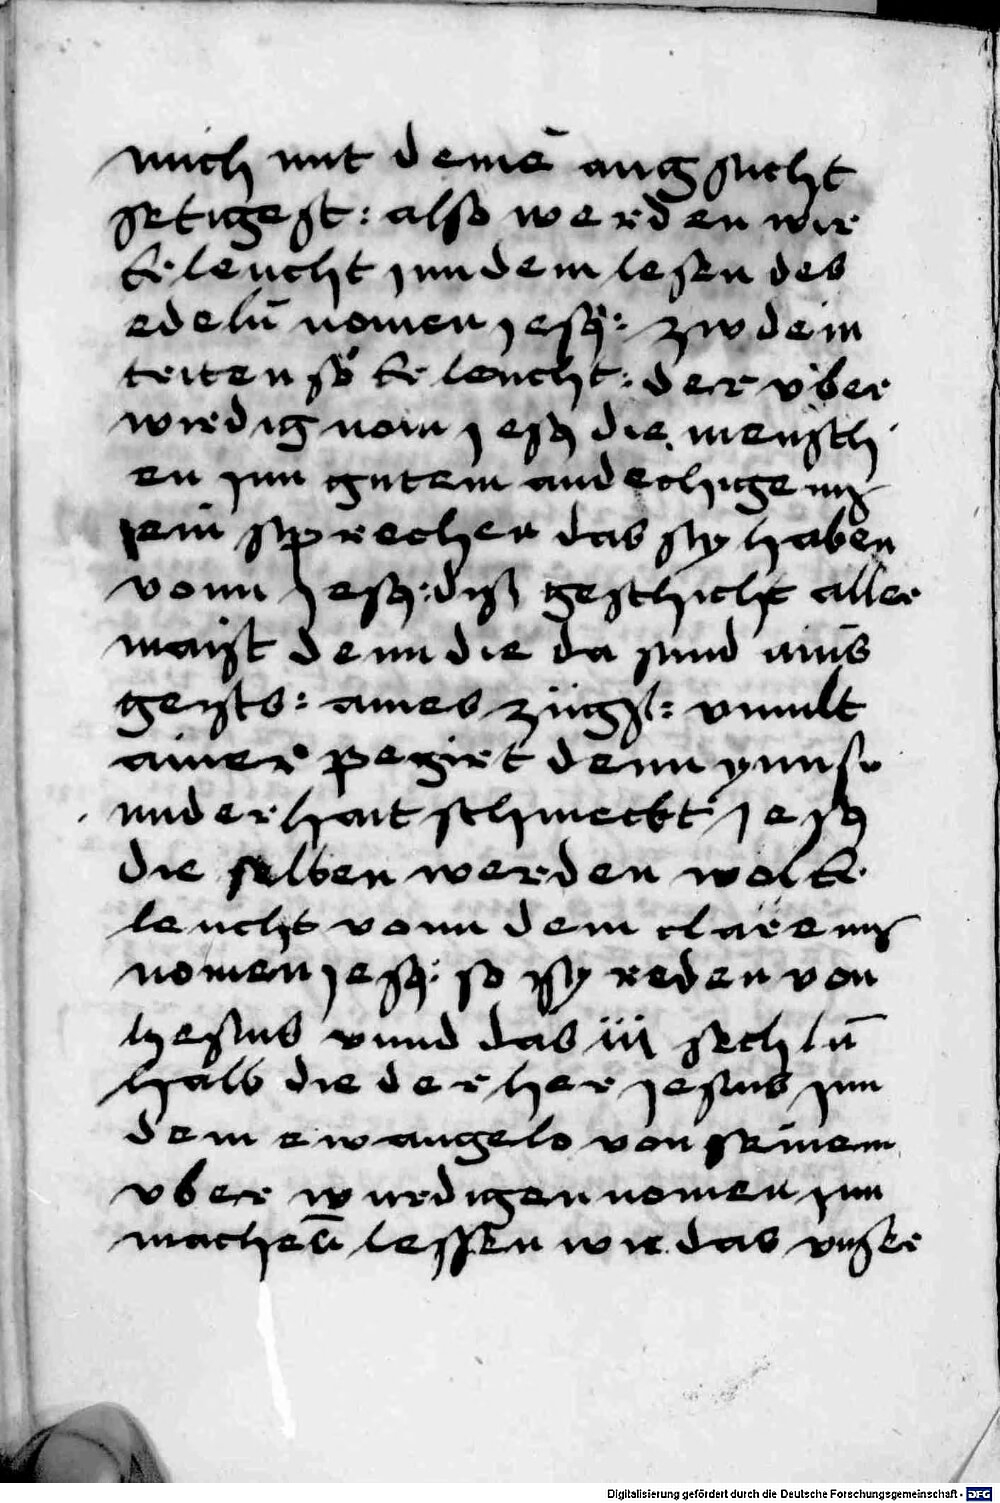 mich mit deinē angsicht
setigest: also werden wir
Erleucht jnn dem lesen des
edelñ nomen jesꝯ: zw dem
triten so Erleucht: der v̈ber
wirdig nom jesꝯ die mensch
en jnn gutem andechige̅m
sprechen das sy haben
vonn jesꝯ: diß geschicht aller
maist denn die da sind ains
geists: aines züg: vnnd
ainer pegirt denn ynn
schmeckt jesꝯ
die selben werden wol Er
leucht vonn dem clarem
nomen jesꝯ: so sy reden von
jhesus vnnd das iij sechlñ
halb die der her jesus jnn
dem ewangelo von seinem
vber wirdigen nomen jnn
lessen wie das vnser
Digitalisierung gefördert durch die Deutsche Forschungsgemeinschaft - DFG